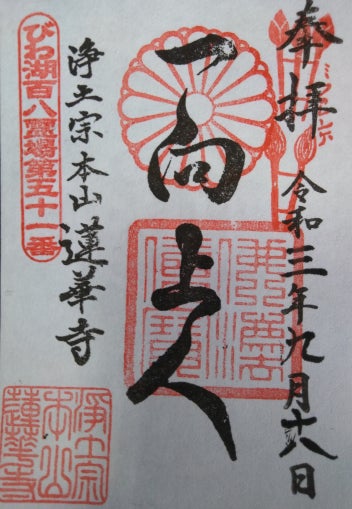 奉拝
令和三年九月十八日
一向上人
浄土宗本山 蓮華寺
びわ湖百八靈場第五十一番
浄土宗
本山
蓮華寺